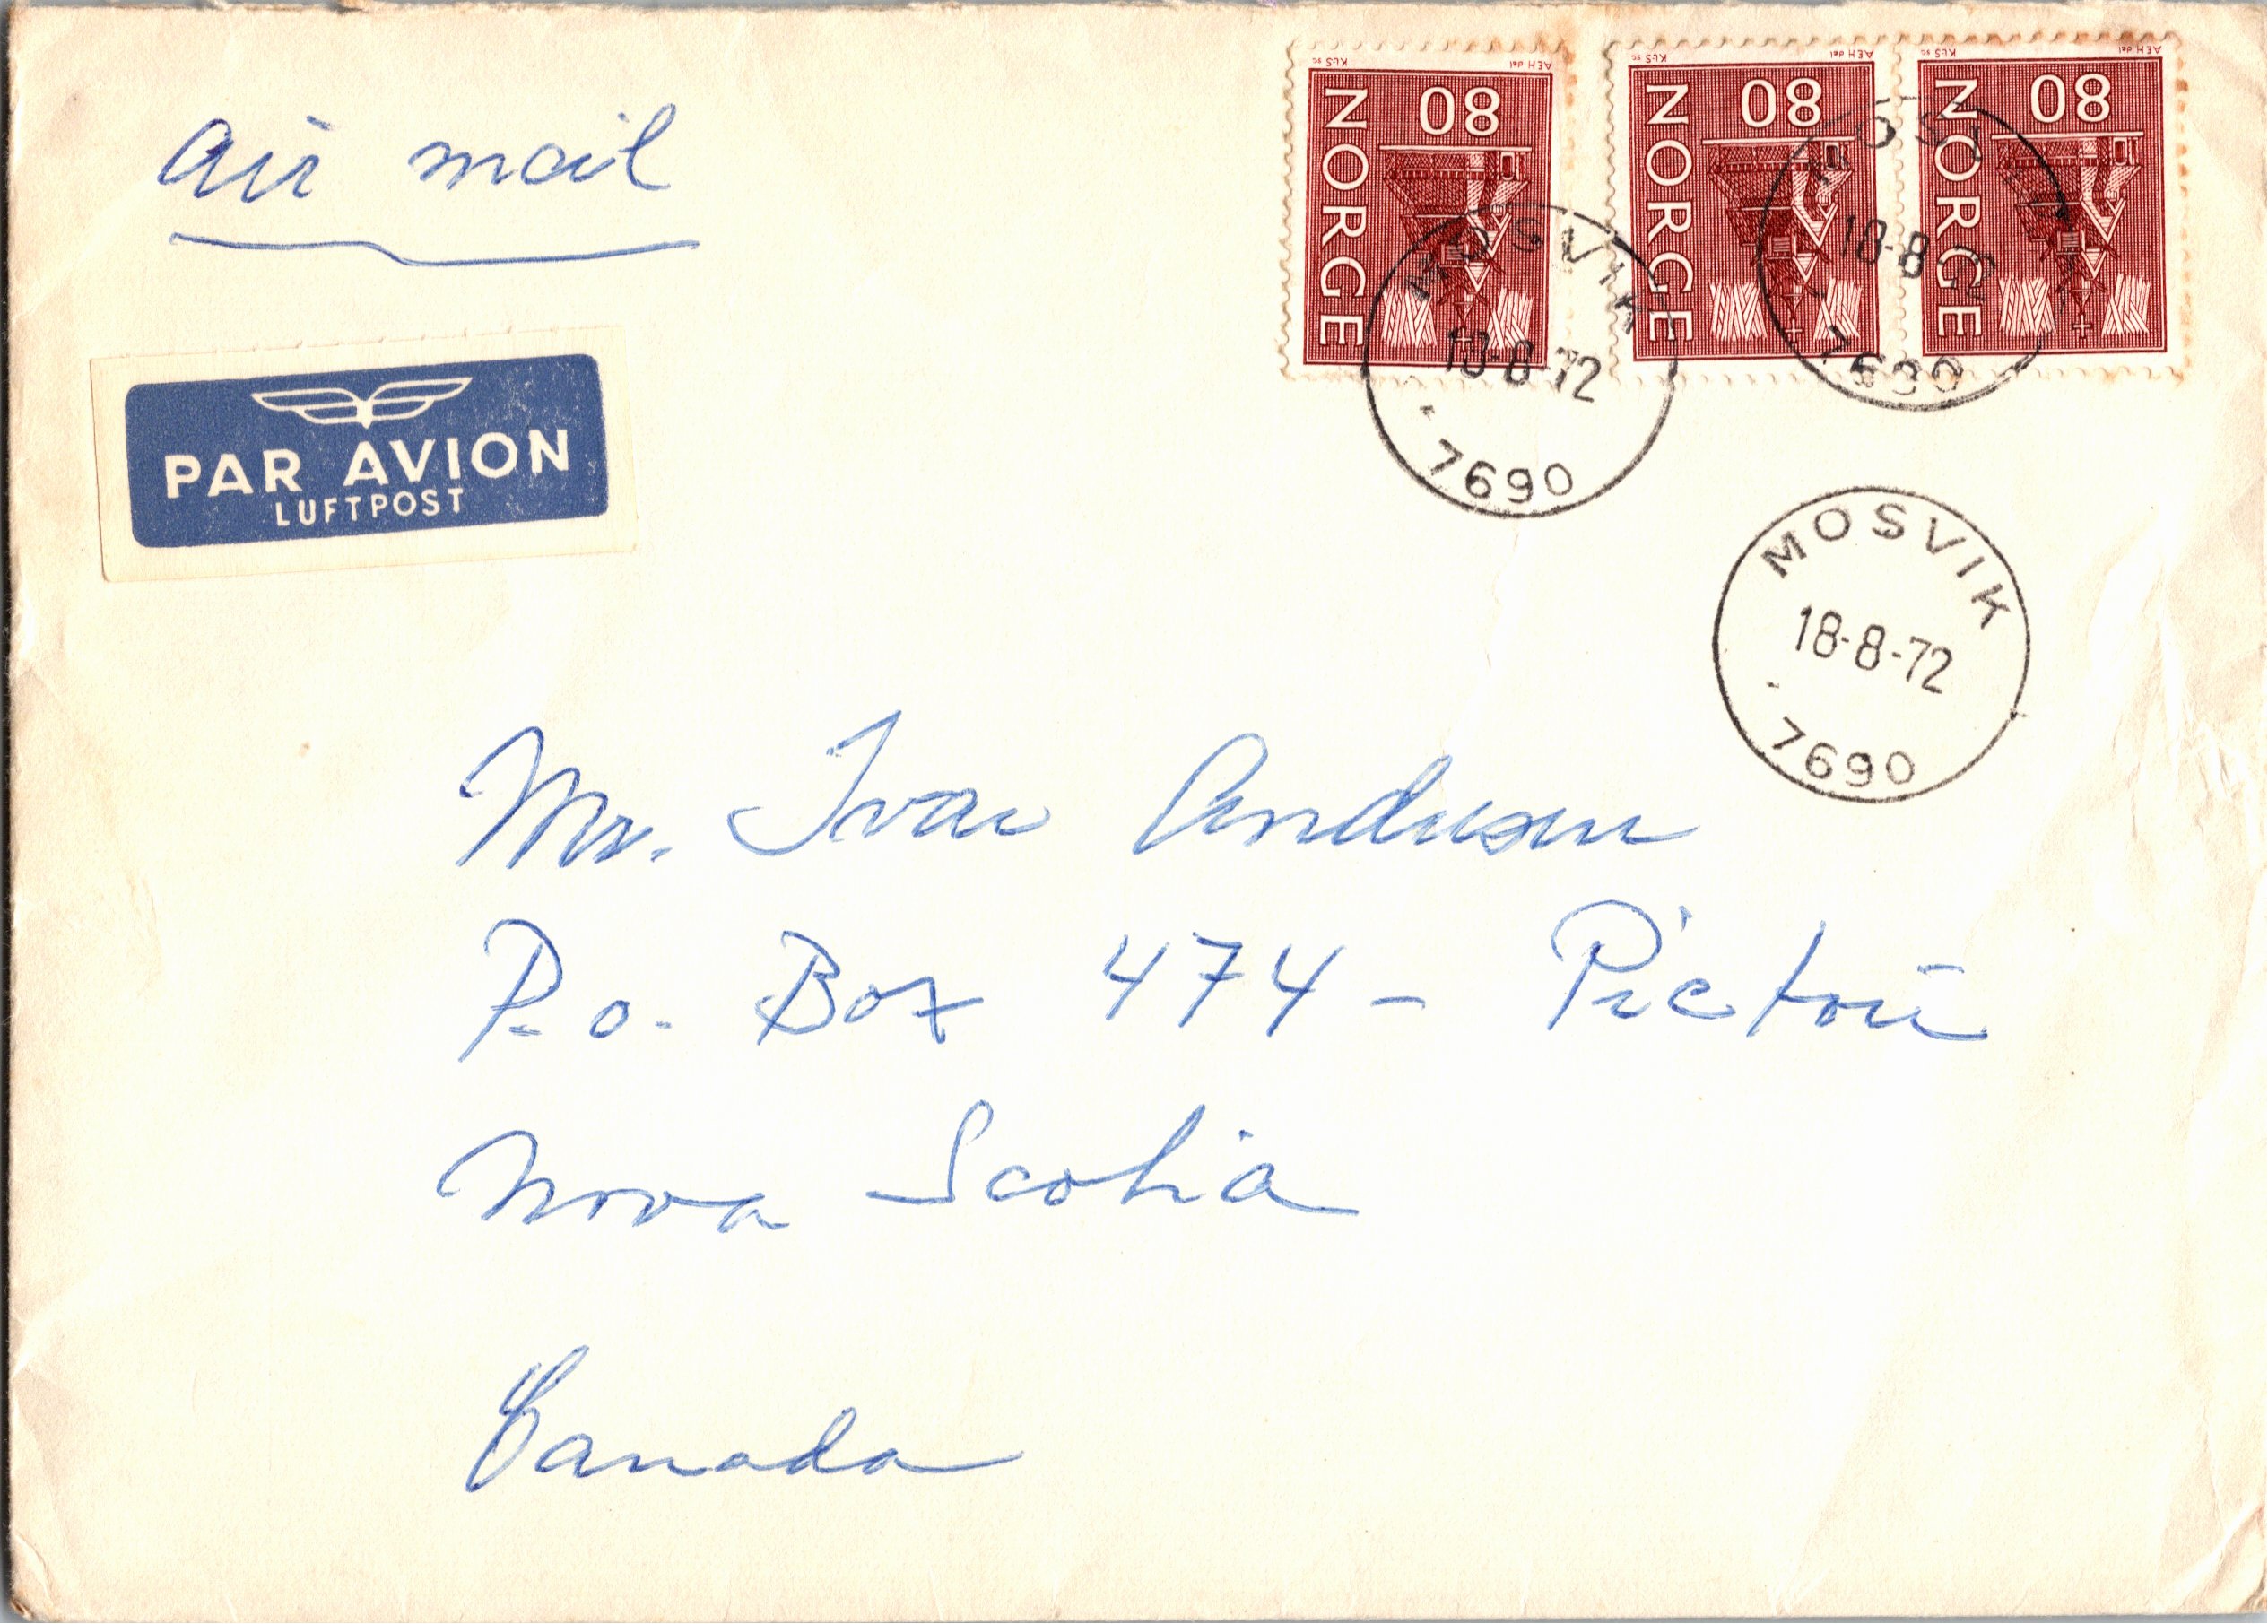 air mail
PAR AVION
LUFTPOST
KLS sc AEH del
NORGE 80
KLS sc AEH del
NORGE 80
KLS sc AEH del
NORGE 80
MOSVIK
18-8-72
7690
MOSVIK
18-8-72
7690
MOSVIK
18-8-72
7690
Mr. Ivar Andresen
P.o. Box 474 - Pictou
Nova Scotia
Canada